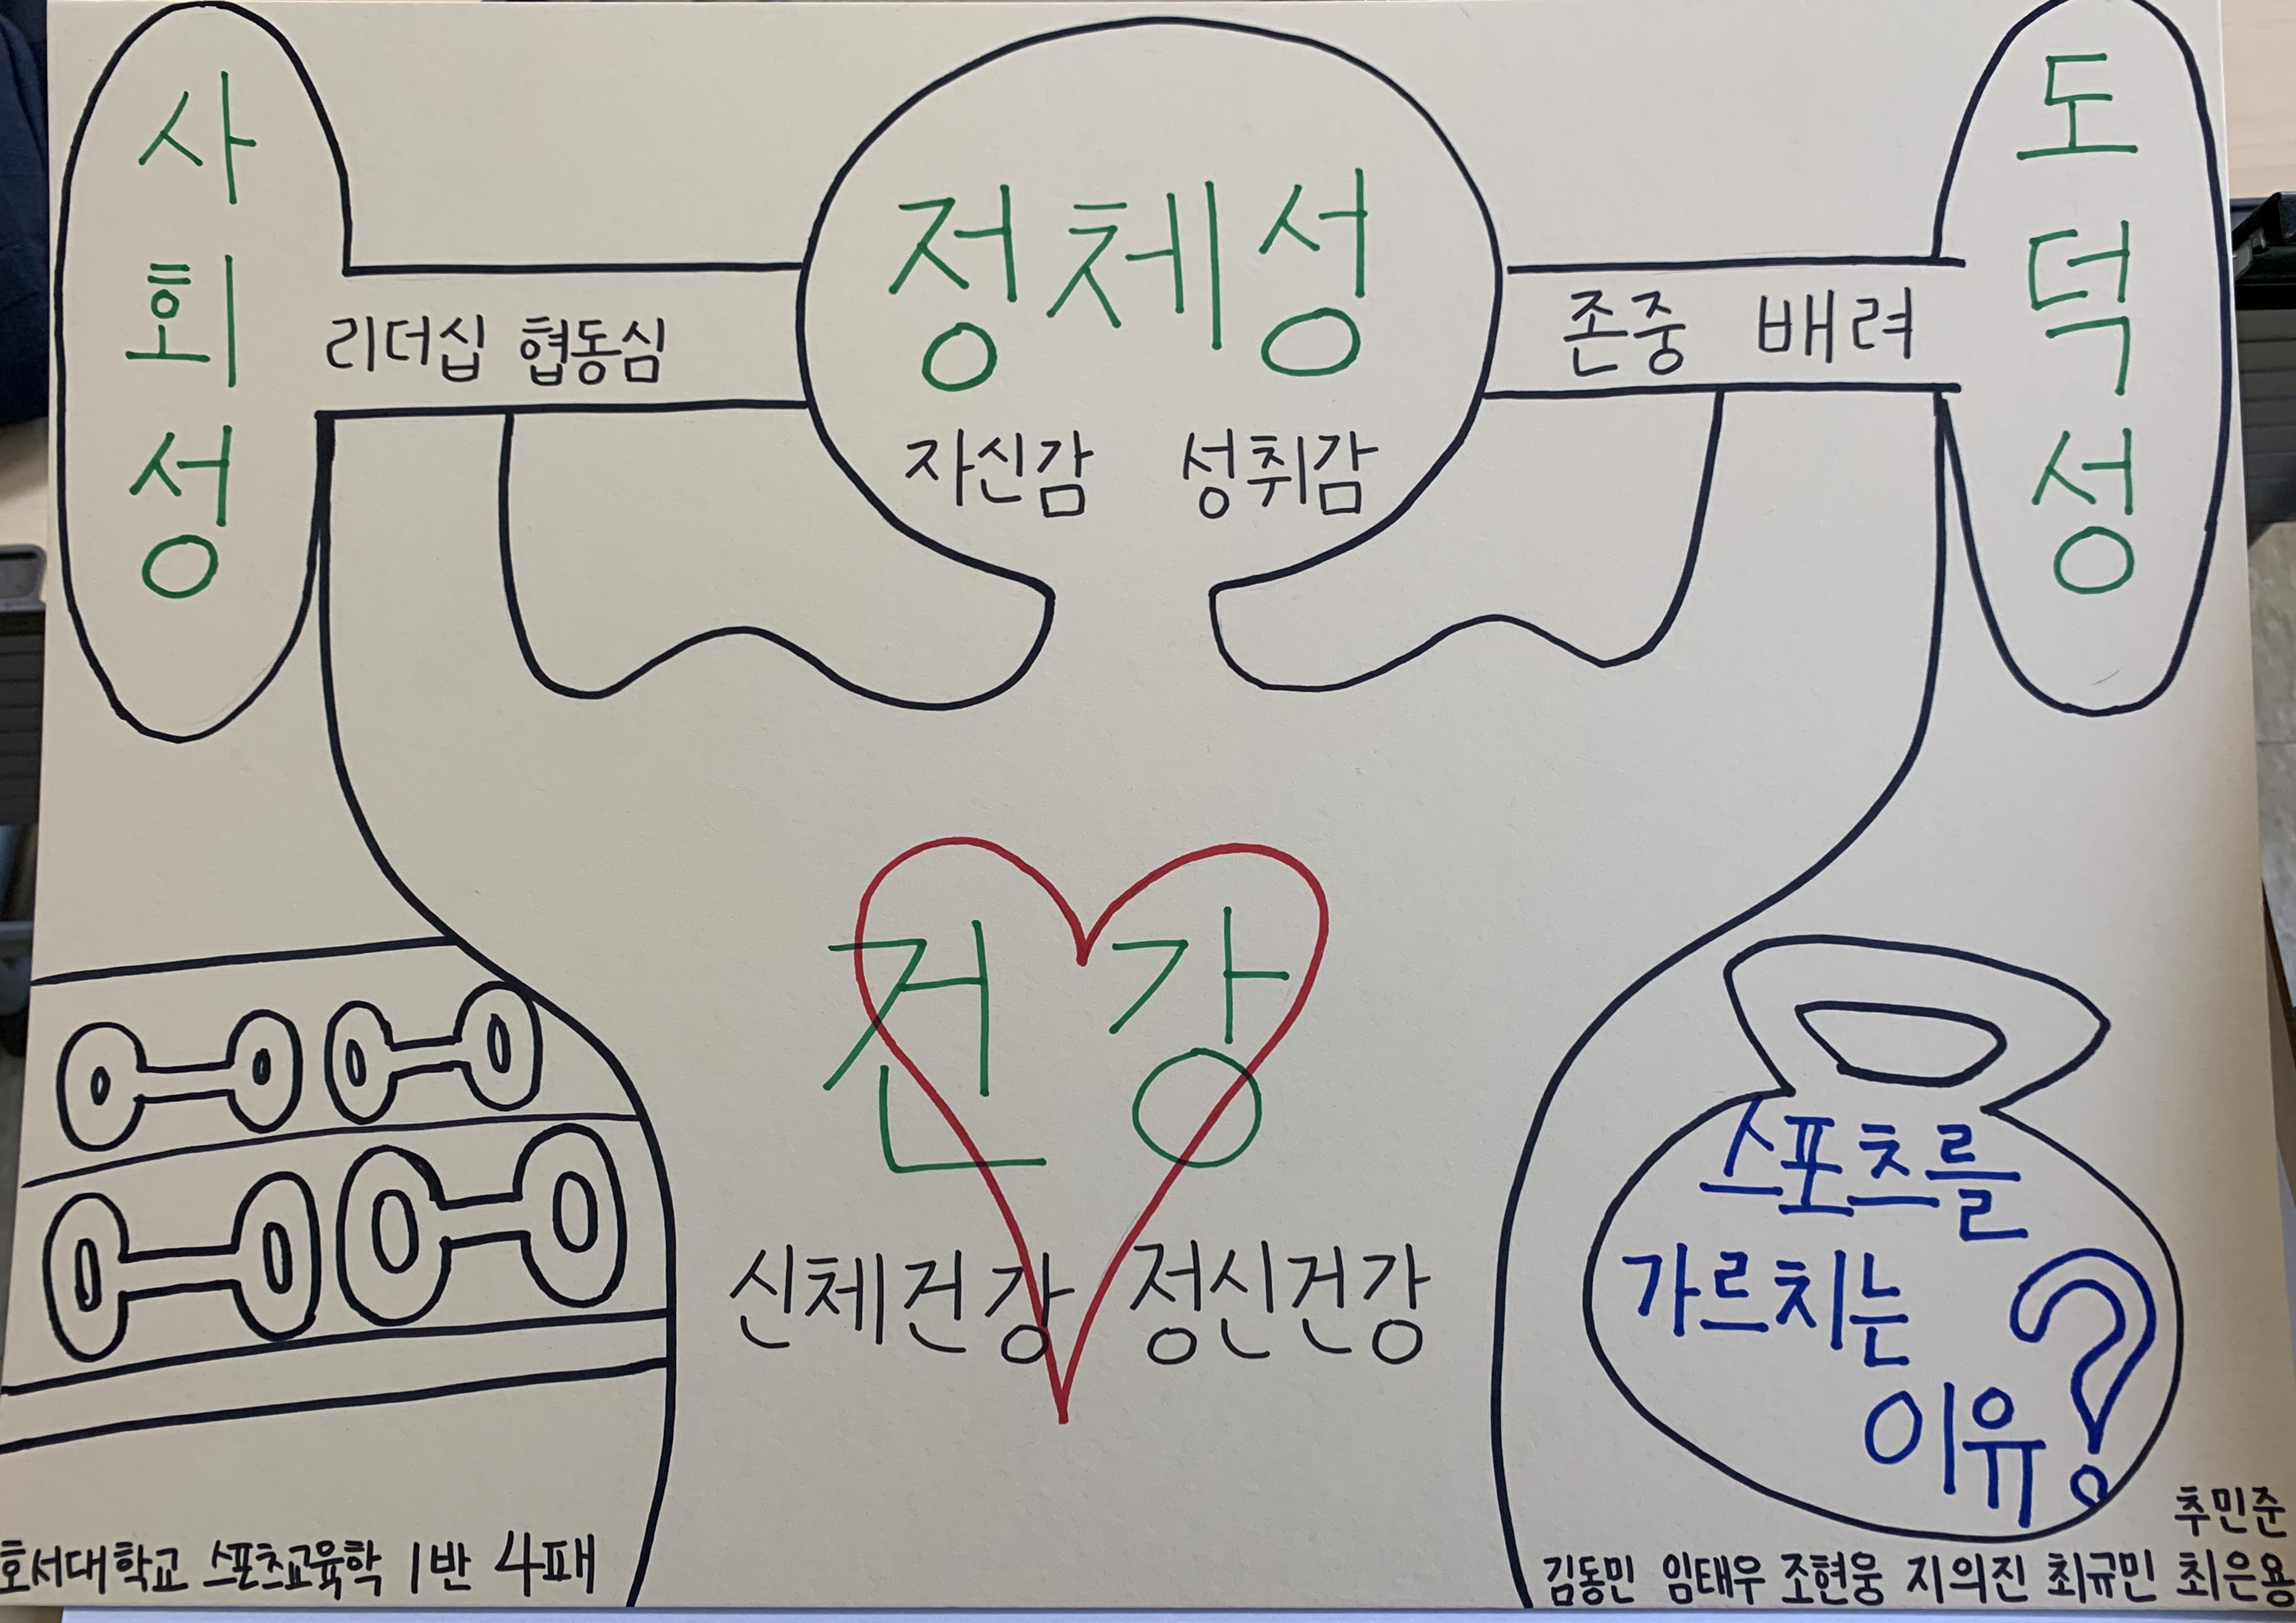 사회성
리더십 협동심
정체성
자신감 성취감
존중 배려
도덕성
건강
신체건강 정신건강
스포츠를
가르치는
이유?
호서대학교 스포츠교육학 1반 4패
추민준
김동민 임태우 조현웅 지의진 최규민 최은용